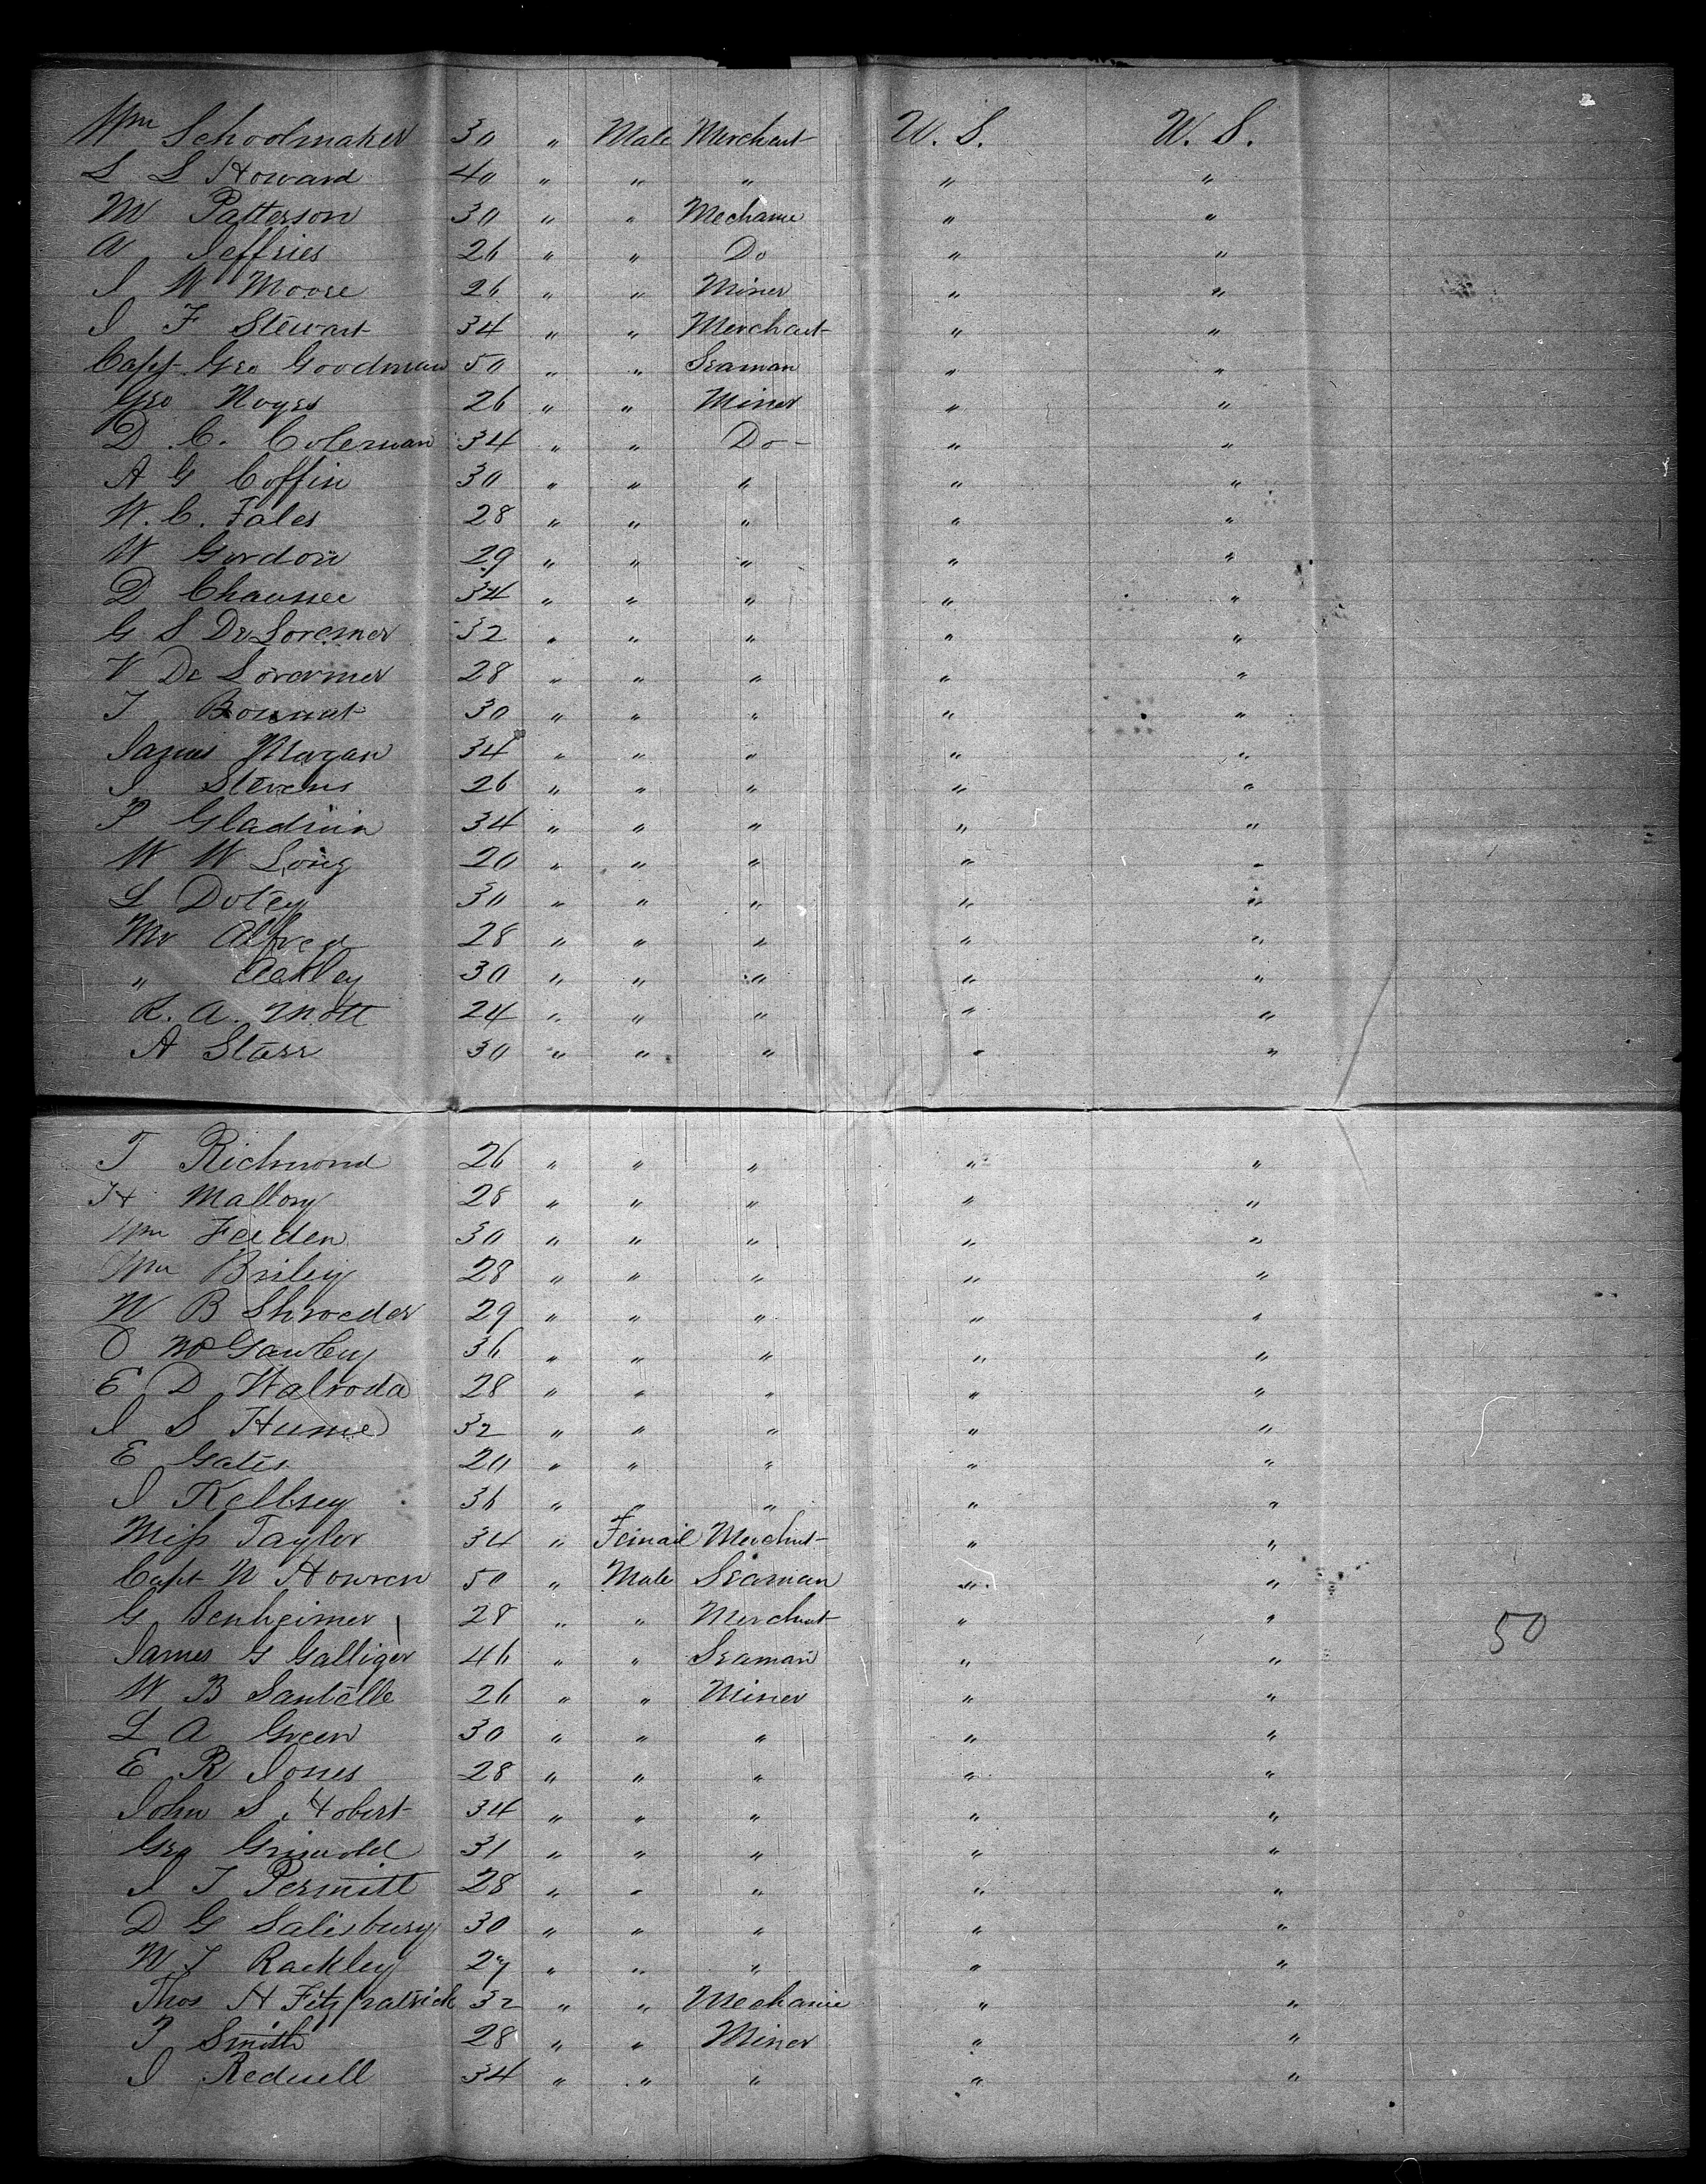 Wm Schoolmaker 30 " Male Merchant U. S. U. S.
L. L Howard 40 " " " " "
M Patterson 30 " " Mechanic " "
A Jeffries 26 " " Do " "
J W Moore 26 " " Miner " "
J F Stewart 34 " " Merchant " "
Capt Geo Goodman 50 " " Seaman " "
Geo Noyes 26 " " Miner " "
D. C. Coleman 34 " " Do " "
A G Coffin 30 " " " " "
W. C. Fales 28 " " " " "
W Gordon 29 " " " " "
D Chaunee 34 " " " " "
G S De Loremer 32 " " " " "
V De Lorormer 28 " " " " "
T 30 " " " " "
James Morgan 34 " " " " "
J Stevens 26 " " " " "
P Gladwin 34 " " " " "
W W Long 20 " " " " "
L Doley 30 " " " " "
Mr Alfred 28 " " " " "
" Ackley 30 " " " " "
R. A. Mott 24 " " " " "
A Starr 30 " " " " "
T Richmond 26 " " " " "
H Mallory 28 " " " " "
Wm Feiden 30 " " " " "
Wm Briley 28 " " " " "
W B Shroeder 29 " " " " "
O 36 " " " " "
E D Walroda 28 " " " " "
J S Hume 32 " " " " "
E Gates 20 " " " " "
J Kellsey 36 " " " " "
Miss Taylor 34 " Femail Merchnt " "
Capt N Howren 50 " Male Seaman " "
G Benheimer 28 " " Merchant " " 50
James G Galliger 46 " " Seaman " "
W B Santelle 26 " " Miner " "
L A Green 30 " " " " "
E R Jones 28 " " " " "
John S Hobert 34 " " " " "
Geo Griswold 31 " " " " "
J T Permitt 28 " " " " "
D G Salisbury 30 " " " " "
W T Rackley 27 " " " " "
Thos H Fitzpatrick 32 " " Mechanic " "
P Smith 28 " " Miner " "
J Redwell 34 " " " " "